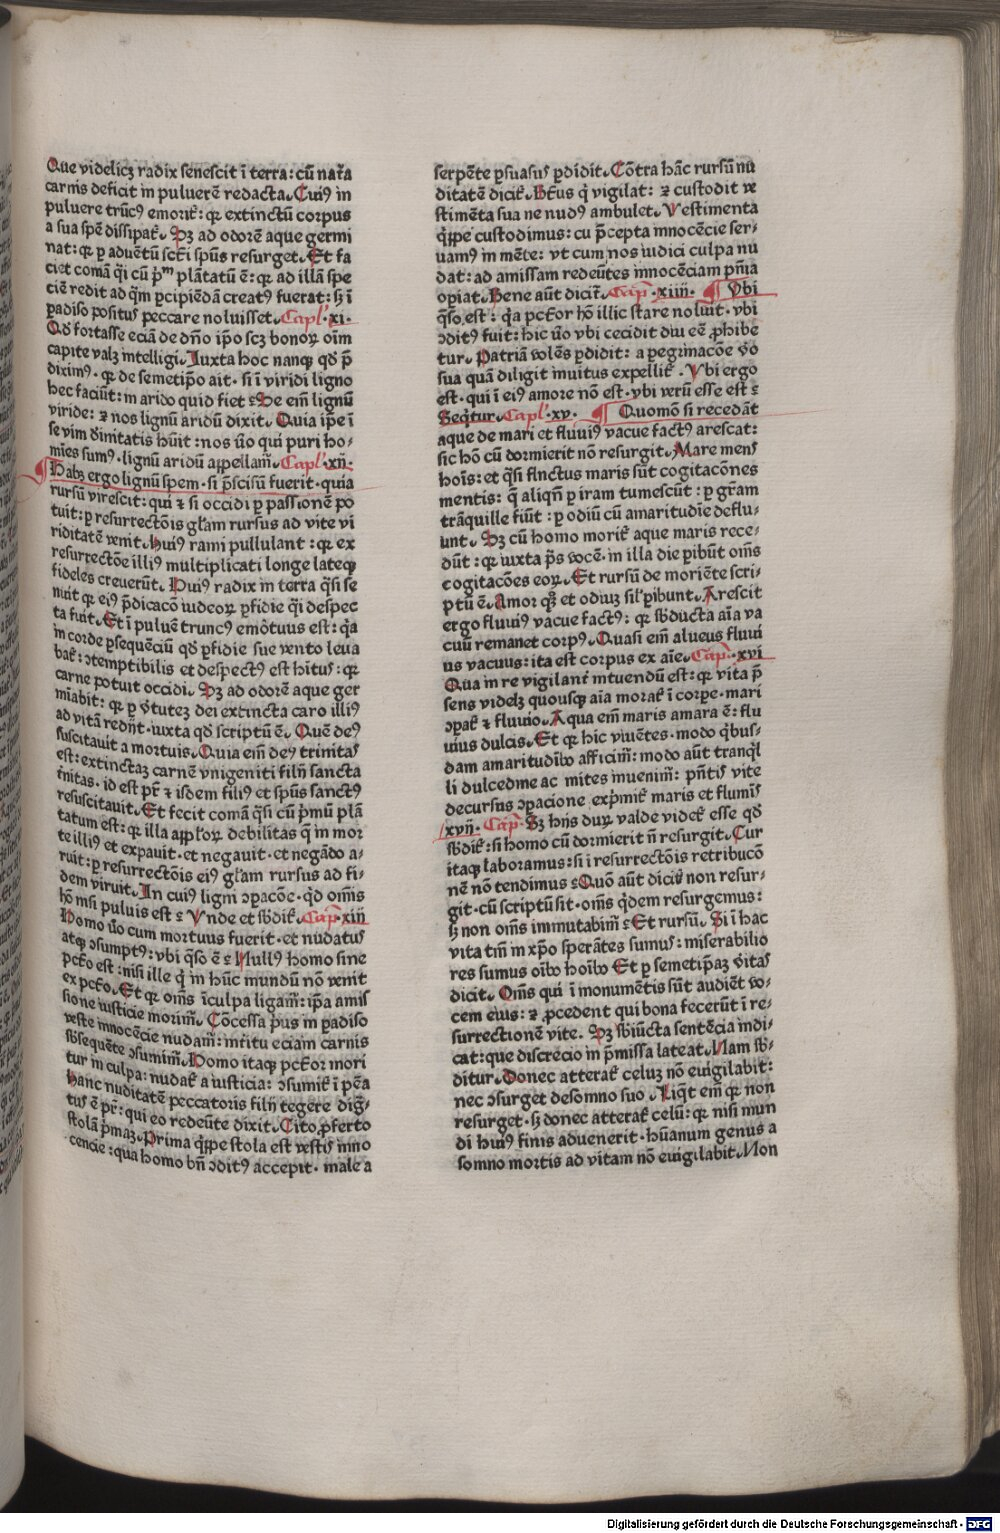 Que videlicꝫ radix ſeneſcit ī terra: cū nat̄a
carnis deficit in puluerē redacta. Cuiꝰ in
puluere trūcꝰ emorit᷑: qꝛ extinctū corpus
a ſua ſpē diſſipat᷑. Sꝫ ad odorē aque germi
nat: qꝛ ꝑ aduētū ſcti ſpūs reſurget. Et fa
ciet comā q̄i cū pͫ plātatū ē: qꝛ ad illā ſpe
ciē redit ad q̄m ꝑcipiēdā creatꝰ fuerat: ſꝫ ī
ꝑadiſo poſitus peccare noluiſſet. Capl᷑ .xi.
Qd̄ fortaſſe eciā de dn̄o ip̄o ſcꝫ bonoꝝ oīm
capite valꝫ intelligi. Iuxta hoc nanqꝫ qd̄ p̄
diximꝰ. qꝛ de ſemetip̄o ait. ſi ī viridi ligno
hec faciūt: in arido quid fiet ⸮ Se em̄ lignū
viride: ⁊ nos lignū aridū dixit. Quia ip̄e ī
ſe vim diuinitatis hūit: nos v̄o qui puri ho-
mīes ſumꝰ. lignū aridū appellam̄. Capl᷑ .xij.
¶ Habꝫ ergo lignū ſpem. ſi p̄ſciſū fuerit. quia
rurſū vireſcit: qui ⁊ ſi occidi ꝑ paſſionē po
tuit: ꝑ reſurrectōis gl̄am rurſus ad vite vi
riditatē venit. Huiꝰ rami pullulant: qꝛ ex
reſurrectōe illiꝰ multiplicati longe lateqꝫ
fideles creuerūt. Huiꝰ radix in terra q̄ſi ſe
nuit qꝛ eiꝰ p̄dicacō iudeoꝝ ꝑfidie q̄i deſpec
ta fuit. Et ī puluē truncꝰ emōtuus eſt: q̄a
in corde ꝑſequēciū qd̄ ꝑfidie ſue vento leua
bat᷑: ꝯtemptibilis et deſpectꝰ eſt hitus: qꝛ
carne potuit occidi. Sꝫ ad odorē aque ger
mīabit: qꝛ ꝑ v̄tutez dei extincta caro illiꝰ
ad vitā redijt. iuxta qd̄ ſcriptū ē. Quē deꝰ
ſuſcitauit a mortuis. Quia em̄ deꝰ trinitas
eſt: extinctaꝫ carnē vnigeniti filij ſancta
t̄nitas. id eſt pr̄ ⁊ iſdem filiꝰ et ſpūs ſanctꝰ
reſuſcitauit. Et fecit comā q̄ſi cū p̄mū plā
tatum eſt: qꝛ illa apl̄oꝝ debilitas q̄ in mor
te illiꝰ et expauit. et negauit. et negādo a-
ruit: ꝑ reſurrectōis eiꝰ gl̄am rurſus ad fi-
dem viruit. In cuiꝰ ligni ꝯpacōe. qd̄ om̄s
hō niſi puluis eſt ⸮ Vnde et ſb̄dit᷑. Cap̄ .xiij
Homo v̄o cum mortuus fuerit. et nudatus
atqꝫ ꝯſumptꝰ: vbi q̄ſo ē ⸮ Nullꝰ homo ſine
pct̄o eſt: niſi ille q̄ in hūc mundū nō venit
ex pct̄o. Et qꝛ om̄s īculpa ligam̄: ip̄a amiſ
ſione iuſticie morim̄. Cōceſſa p̄us in paradiſo
veſte innocēcie nudam̄: interitu eciam carnis
ſb̄ſequēte ꝯſumim̄. Homo itaqꝫ pct̄or mori
tur in culpa: nudat᷑ a iuſticia: ꝯſumit᷑ ī pēa
Hanc nuditatē peccatoris filij tegere diḡ-
tus ē pr̄: qui eo redeūte dixit. Cito ꝓferto
ſtolā p̄maꝫ. Prima q̄ppe ſtola eſt veſtis inno
cencie: qua homo bn̄ ꝯditꝰ accepit. male a
ſerpēte ꝑſuaſus ꝑdidit. Cōtra hāc rurſū nu
ditatē dicit᷑. Bt̄us q̄ vigilat: ⁊ cuſtodit ve
ſtimēta ſua ne nudꝰ ambulet. Veſtimenta
q̄ppe cuſtodimus: cū p̄cepta innocēcie ſer-
uamꝰ in mēte: vt cum nos iudici culpa nu
dat: ad amiſſam redeūtes innocēciam pn̄ia
oꝑiat. Bene aūt dicit᷑. Cap̄ .xiiij. ¶ Vbi
q̄ſo eſt: q̄a pct̄or hō illic ſtare noluit. vbi
ꝯditꝰ fuit: hic v̄o vbi cecidit diu eē ꝓhibe
tur. Patriā volēs ꝑdidit: a ꝑegrinacōe v̄o
ſua quā diligit inuitus expellit᷑. Vbi ergo
eſt. qui ī eiꝰ amore nō eſt. vbi verū eſſe eſt ⸮
Seq̄tur. Capl᷑ .xv. ¶ Quomō ſi recedāt
aque de mari et fluuiꝰ vacue factꝰ areſcat:
ſic hō cū dormierit nō reſurgit. Mare mens
hoīs: et q̄ſi fluctus maris ſūt cogitacōnes
mentis: q̄ aliqn̄ ꝑ iram tumeſcūt: ꝑ gr̄am
trāquille fiūt: ꝑ odiū cū amaritudīe deflu-
unt. Sꝫ cū homo morit᷑ aque maris rece-
dūt: qꝛ iuxta p̄s vocē. in illa die ꝑibūt om̄s
cogitacōes eoꝝ. Et rurſū de moriēte ſcri-
ptū ē. Amor qꝫ et odiuꝫ ſil̄ ꝑibunt. Areſcit
ergo fluuiꝰ vacue factꝰ: qꝛ ſb̄ducta aīa va
cuū remanet corpꝰ. Quaſi em̄ alueus fluui
us vacuus: ita eſt corpus ex aīe. Cap̄ .xvi
Qua in re vigilant᷑ intuendū eſt: qꝛ vita p̄
ſens videlꝫ quouſqꝫ aīa morat᷑ ī corpe. mari
ꝯpat᷑ ⁊ fluuio. Aqua em̄ maris amara ē: flu
uius dulcis. Et qꝛ hic viuētes. modo q̄buſ-
dam amaritudībꝰ afficim̄: modo aūt tranq̄l
li dulcedīe ac mites inuenim̄: pn̄tis vite
decurſus ꝯpacione exp̄mit᷑ maris et fluminis
.xvij. Cap̄. Sꝫ hijs duꝝ valde videt᷑ eſſe qd̄
ſb̄dit᷑: ſi homo cū dormierit n̄ reſurgit. Cur
itaqꝫ laboramus: ſi ī reſurrectōis retribucō
nē nō tendimus ⸮ Quō aūt dicis non reſur-
git. cū ſcriptū ſit. om̄s q̄dem reſurgemus:
ſꝫ non om̄s immutabim̄ ⸮ Et rurſū. Si ī hac
vita tm̄ in xp̄o ſperātes ſumus: miſerabilio
res ſumus oībꝰ hoībꝰ Et ꝑ ſemetip̄aꝫ v̄itas
dicit. Om̄s qui ī monumētis ſūt audiēt vo-
cem eius: ⁊ ꝓcedent qui bona fecerūt ī re-
ſurrectionē vite. Sꝫ ſb̄iūcta ſentēcia indi-
cat: que diſcrecio in p̄miſſa lateat. Nam ſb̄-
ditur. Donec atterat᷑ celuꝫ nō euigilabit:
nec ꝯſurget deſomno ſuo. Liq̄t em̄ qꝛ non
reſurget. ſꝫ donec atterat᷑ celū: qꝛ niſi mun
di huiꝰ finis aduenerit. hūanum genus a
ſomno mortis ad vitam nō euigilabit. Non
Digitalisierung gefördert durch die Deutsche Forschungsgemeinschaft - DFG